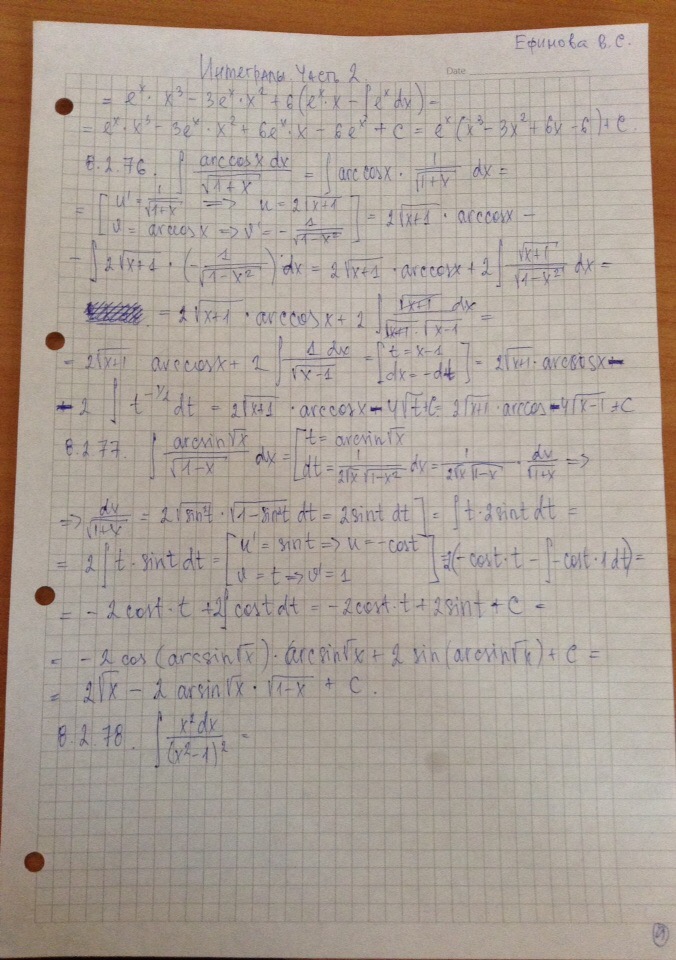 Ефинова В. С.
Интегралы. Часть 2. Date
= eˣ · x³ − 3eˣ · x² + 6(eˣ · x − ∫eˣ dx) =
= eˣ · x³ − 3eˣ · x² + 6eˣ · x − 6eˣ + C = eˣ(x³ − 3x² + 6x − 6) + C.
8.2.76. ∫ arccos x dx / √(1+x) = ∫ arccos x · 1/√(1+x) dx =
= [u' = 1/√(1+x) => u = 2√(x+1) ; v = arccos x => v' = − 1/√(1−x²)] = 2√(x+1) · arccos x −
− ∫ 2√(x+1) · (− 1/√(1−x²)) dx = 2√(x+1) · arccos x + 2 ∫ √(x+1)/√(1−x²) dx =
= 2√(x+1) · arccos x + 2 ∫ √(x+1) dx / (√(x+1) · √(x−1)) =
= 2√(x+1) arccos x + 2 ∫ 1 dx/√(x−1) = [t = x−1 ; dx = −dt] = 2√(x+1) · arccos x −
− 2 ∫ t^(−1/2) dt = 2√(x+1) · arccos x − 4√t + C = 2√(x+1) · arccos − 4√(x−1) + C
8.2.77. ∫ arcsin√x / √(1−x) dx = [t = arcsin√x ; dt = 1/(2√x √(1−x²)) dx = 1/(2√x √(1−x)) · dx/√(1+x) =>
=> dx/√(1+x) = 2√(sin²t) · √(1−sin²t) dt = 2sin t dt] = ∫ t · 2sin t dt =
= 2 ∫ t · sin t dt = [u' = sin t => u = −cos t ; v = t => v' = 1] = 2(−cos t · t − ∫ −cos t · 1 dt) =
= − 2cos t · t + 2∫ cos t dt = −2cos t · t + 2sin t + C =
= − 2 cos (arcsin√x) · arcsin√x + 2 sin(arcsin√x) + C =
= 2√x − 2 arsin√x · √(1−x) + C.
8.2.78. ∫ x² dx / (x²−1)² =